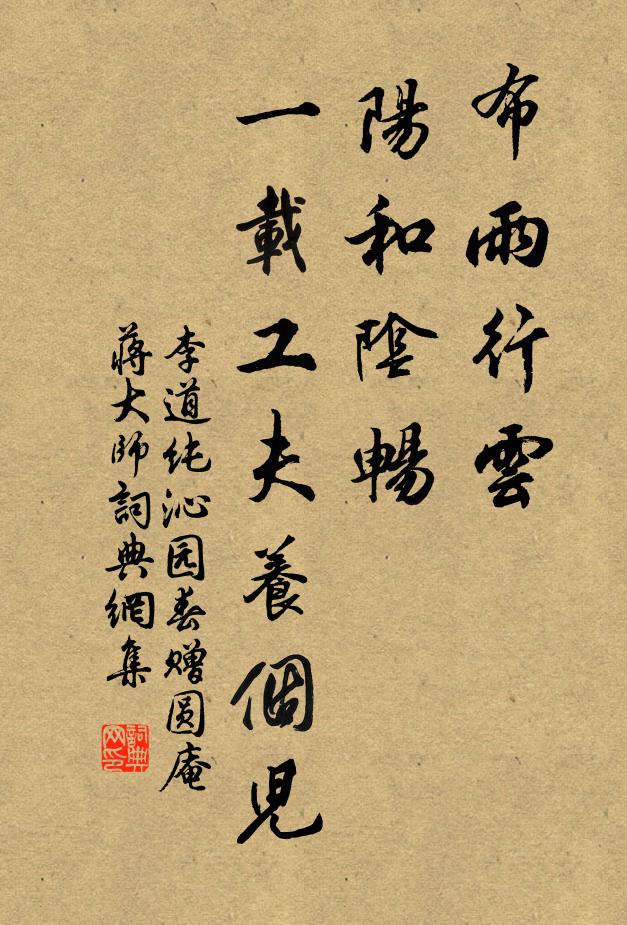 布雨行雲
陽和陰暢
一載工夫養個兒
李道純沁园春赠圓庵
蔣大師詞典網集
詞典网印